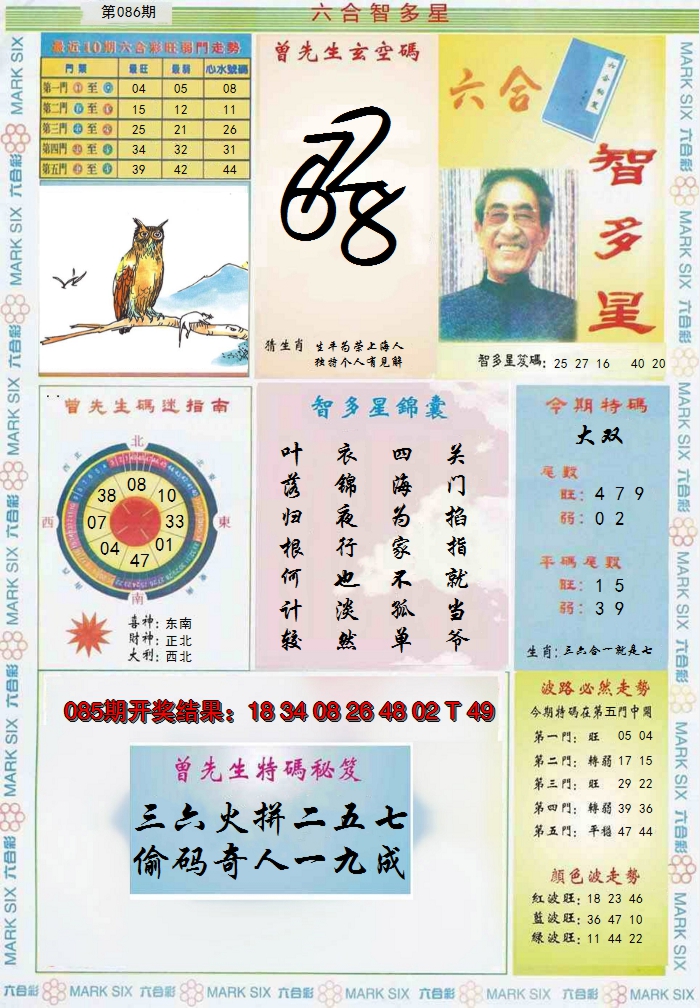 第086期
六合智多星
最近10期六合彩旺弱門走勢
門票 最旺 最弱 心水號碼
第一門 至 04 05 08
第二門 至 15 12 11
第三門 至 25 21 26
第四門 至 34 32 31
第五門 至 39 42 44
曾先生玄空碼
猜生肖 生平为荣上海人
独特个人有见解
六合
智多星
智多星笈碼: 25 27 16 40 20
曾先生碼迷指南
北
西
東
南
38 08 10
07 33
04 47 01
喜神: 东南
財神: 正北
大利: 西北
智多星錦囊
关门掐指就当爷
四海为家不孤单
衣锦夜行也淡然
叶落归根何计较
今期特碼
大双
尾數
旺: 4 7 9
弱: 0 2
平碼尾數
旺: 1 5
弱: 3 9
生肖: 三六合一就是七
085期开奖结果: 18 34 08 26 48 02 T 49
曾先生特碼秘笈
三六火拼二五七
偷码奇人一九成
波路必然走勢
今期特碼在第五門中開
第一門: 旺 05 04
第二門: 轉弱 17 15
第三門: 旺 29 22
第四門: 轉弱 39 36
第五門: 平穩 47 44
顔色波走勢
紅波旺: 18 23 46
藍波旺: 36 47 10
绿波旺: 11 44 22
六合彩 MARK SIX 六合彩 MARK SIX 六合彩 MARK SIX 六合彩 MARK SIX 六合彩 MARK SIX